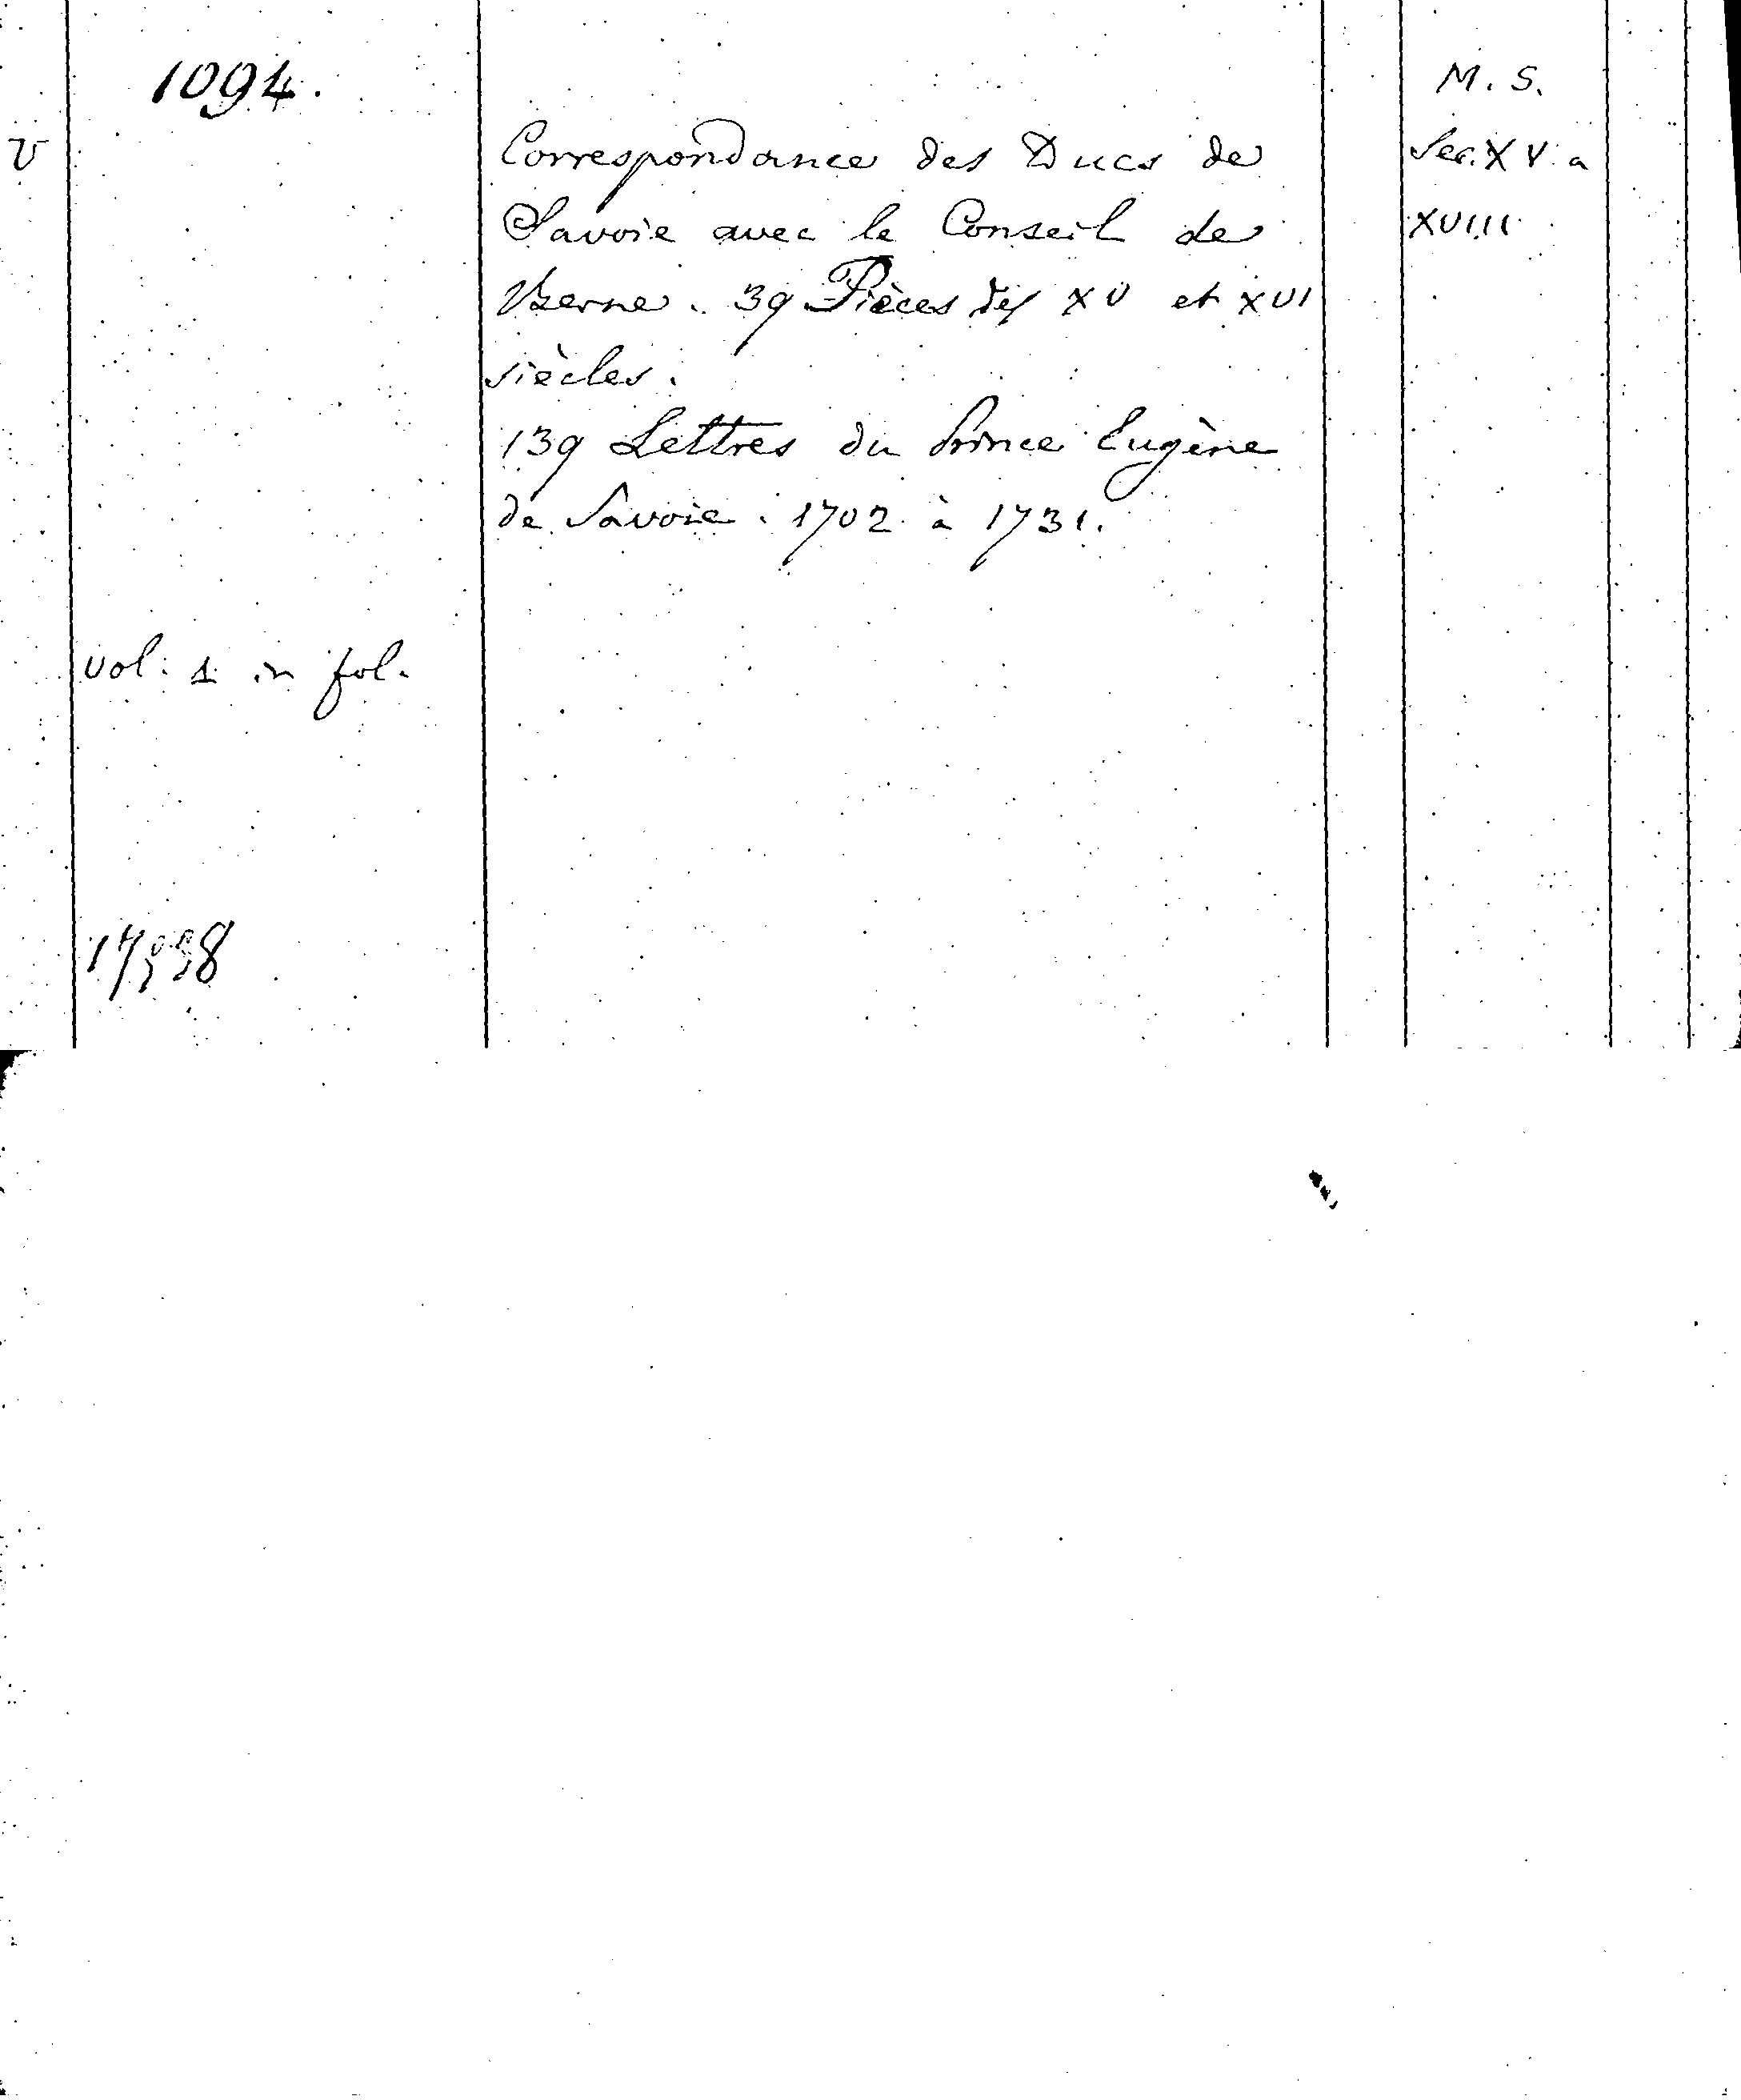 1094.
M. S.
V
Correspondance des Ducs de
Sec. XV a
Savoie avec le Conseil de
XVIII
Berne. 39 Pièces des XV et XVI
siècles.
139 Lettres du Prince Eugène
de Savoie. 1702 à 1731.
vol. 1 in fol.